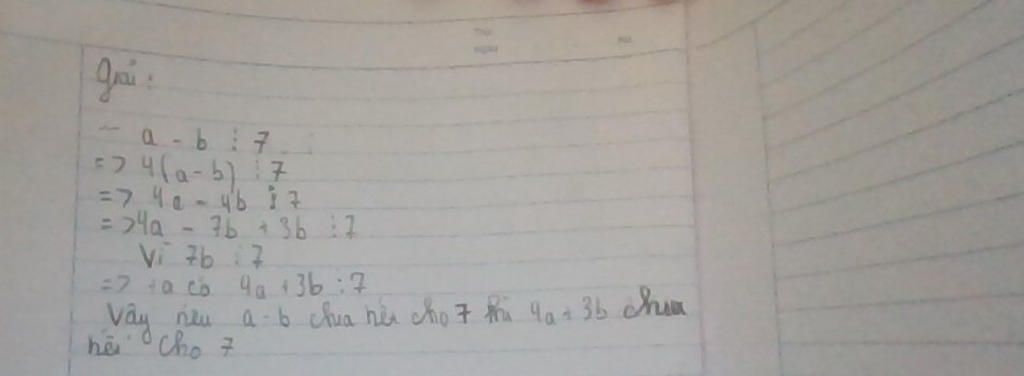 Giải:
- a - b ⋮ 7
=> 4(a-b) ⋮ 7
=> 4a - 4b ⋮ 7
=> 4a - 7b + 3b ⋮ 7
Vì 7b ⋮ 7
=> ta có 4a + 3b ⋮ 7
Vậy nếu a-b chia hết cho 7 thì 4a+3b chia
hết cho 7